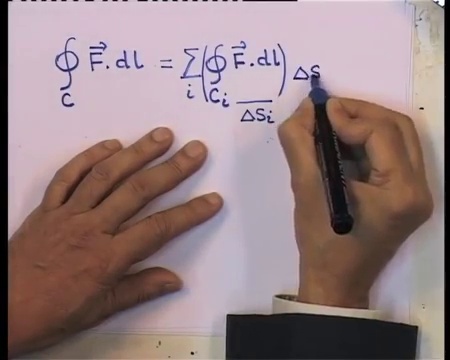 ∮_C F⃗.dl = Σ_i (∮_{C_i} F⃗.dl / ΔS_i) ΔS